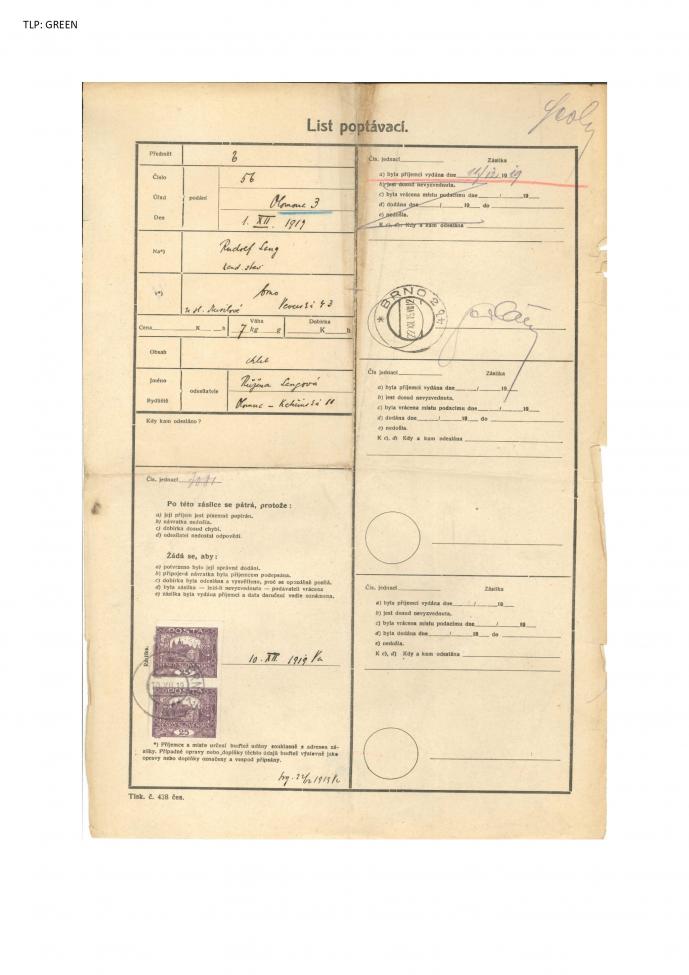 TLP: GREEN
List poptávací.
Předmět
Číslo 56
Úřad podání Olomouc 3
Den 1. XII. 1919
Na*)
Rudolf Lang
v*)
Brno
Cena K h Váha 7 kg g Dobírka K h
Obsah chleb
Jméno odesílatele Růžena Langová
Bydliště Olomouc
Kdy kam odesláno?
Čís. jednací
Po této zásilce se pátrá, protože:
a) její příjem jest písemně popírán.
b) návratka nedošla.
c) dobírka dosud chybí.
d) odesílatel nedostal odpovědi.
Žádá se, aby:
a) potvrzeno bylo její správné dodání.
b) připojená návratka byla příjemcem podepsána.
c) dobírka byla odeslána a vysvětleno, proč se opožděně posílá.
d) byla zásilka — leží-li nevyzvednuta — podavateli vrácena
e) zásilka byla vydána příjemci a data doručení vedle oznámena.
Známka.
POSTA
25
25
10. XII. 1919
*) Příjemce a místo určení buďtež udány souhlasně s adresou zá-
silky. Případné opravy nebo doplňky těchto údajů buďtež výslovně jako
opravy nebo doplňky označeny a vespod připsány.
Tisk. č. 438 čes.
Čís. jednací Zásilka
a) byla příjemci vydána dne 11/12 19 19
b) jest dosud nevyzvednuta.
c) byla vrácena místu podacímu dne / 19
d) dodána dne / 19 do
e) nedošla.
K c), d): Kdy a kam odeslána
* BRNO 2
22 XII 19
Čís. jednací Zásilka
a) byla příjemci vydána dne / 19
b) jest dosud nevyzvednuta.
c) byla vrácena místu podacímu dne / 19
d) dodána dne / 19 do
e) nedošla.
K c), d): Kdy a kam odeslána
Čís. jednací Zásilka
a) byla příjemci vydána dne / 19
b) jest dosud nevyzvednuta.
c) byla vrácena místu podacímu dne / 19
d) byla dodána dne / 19 do
e) nedošla.
K c), d) Kdy a kam odeslána